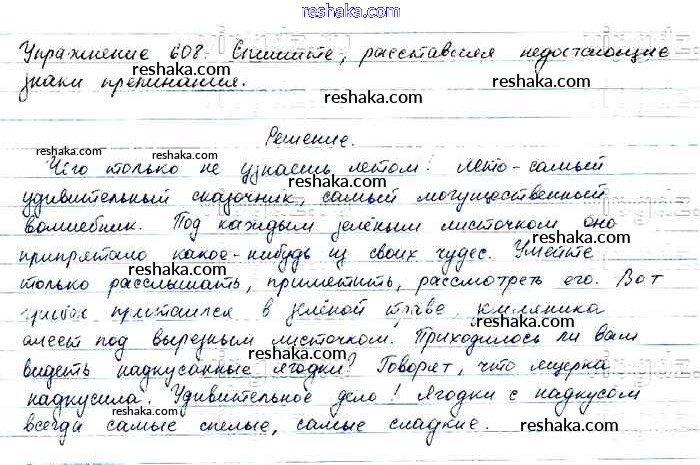 reshaka.com
Упражнение 608. Спишите, расставляя недостающие
reshaka.com reshaka.com
знаки препинания.
reshaka.com
Решение.
reshaka.com reshaka.com
Чего только не узнаешь летом! Лето - самый
удивительный сказочник, самый могущественный
reshaka.com reshaka.com
волшебник. Под каждым зелёным листочком оно
reshaka.com
припрятало какое-нибудь из своих чудес. Умейте
reshaka.com reshaka.com
только расслышать, приметить, рассмотреть его. Вот
грибок притаился в зелёной траве, земляника
reshaka.com reshaka.com
алеет под вырезным листочком. Приходилось ли вам
reshaka.com
видеть надкусанные ягодки? Говорят, что ящерка
reshaka.com reshaka.com
надкусила. Удивительное дело! Ягодки с надкусом
всегда самые спелые, самые сладкие.
reshaka.com reshaka.com